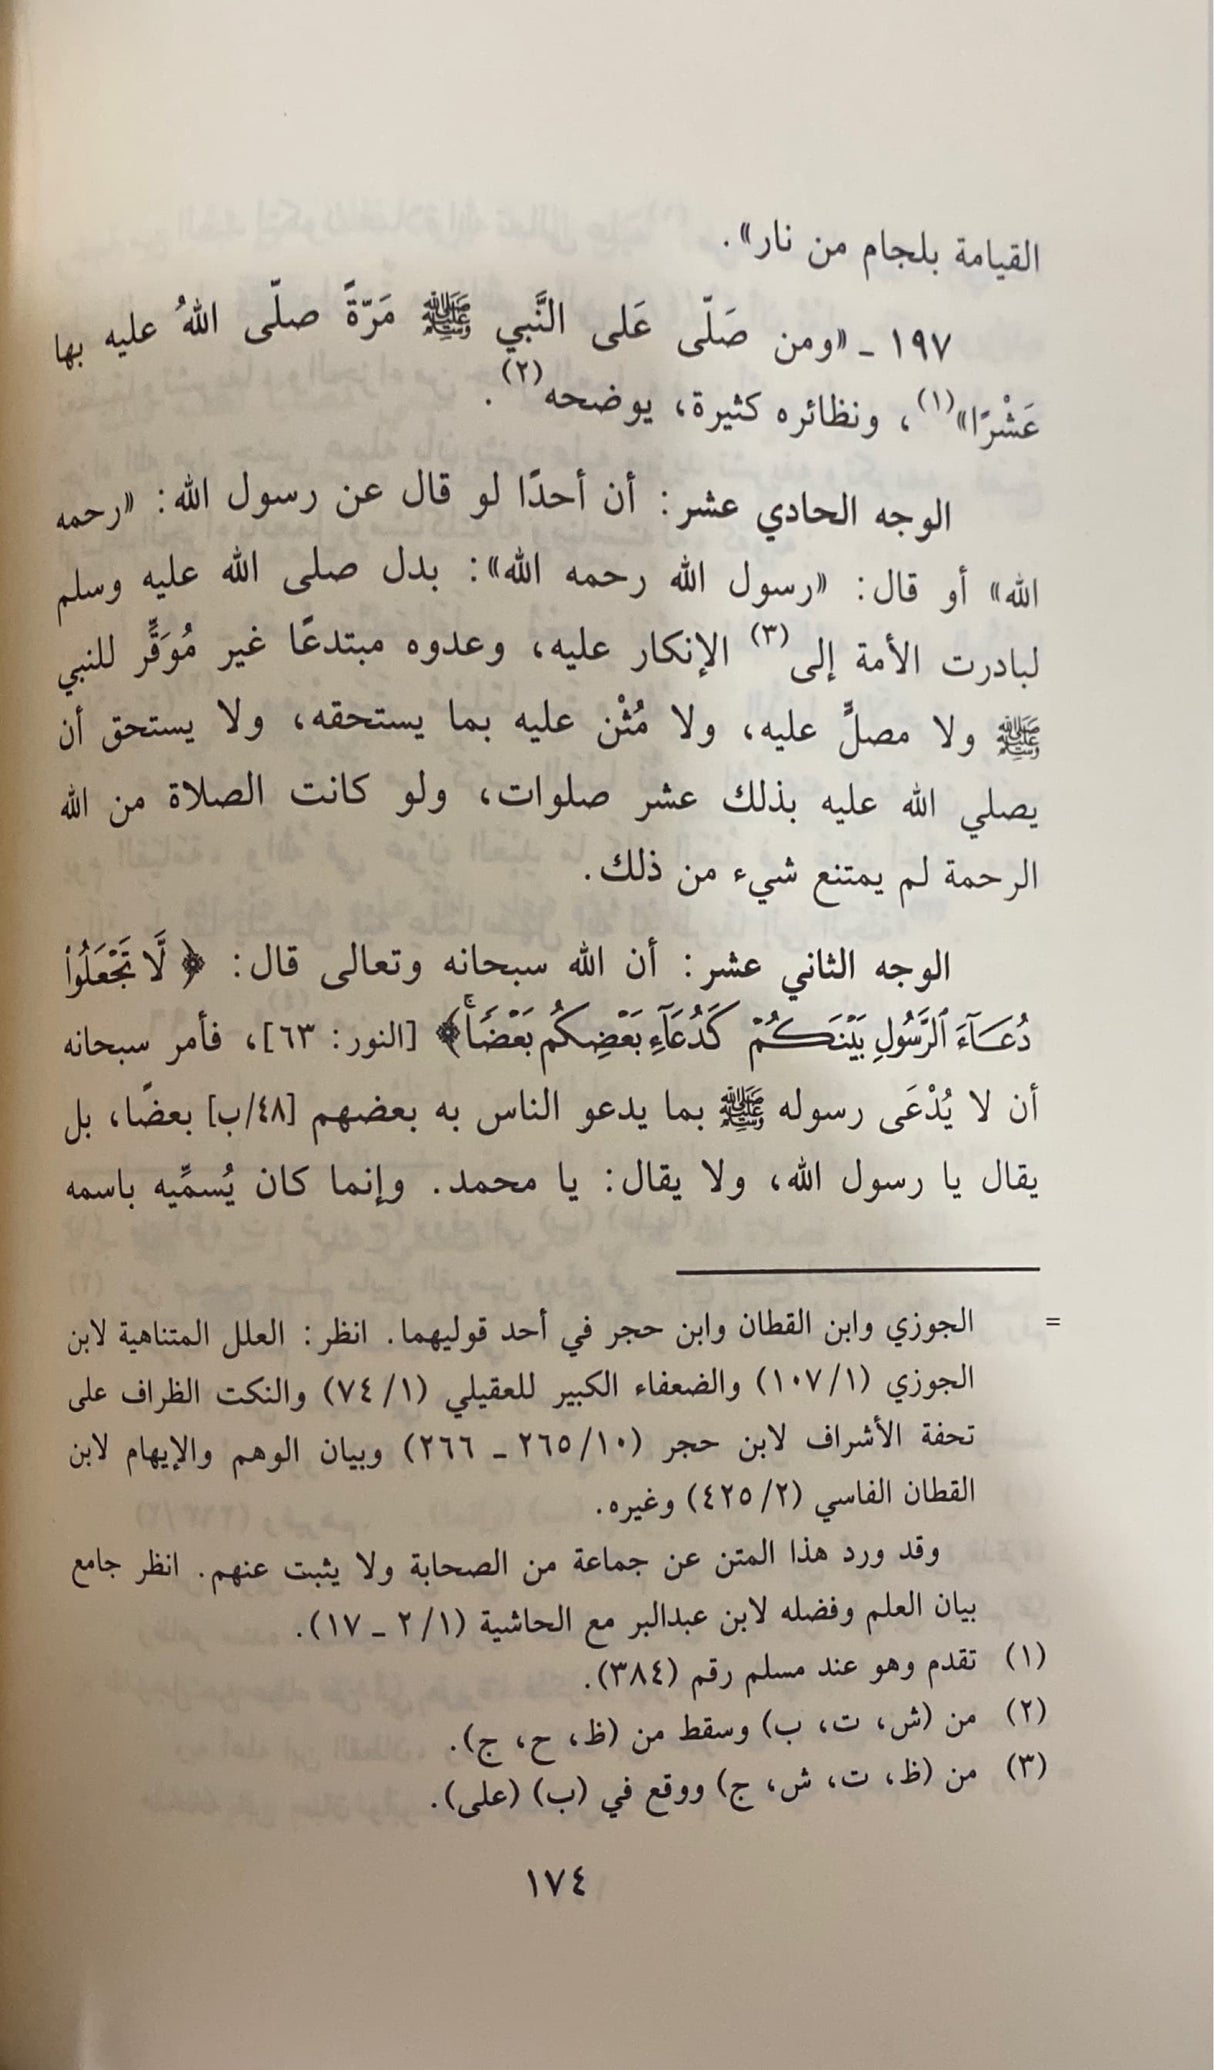 القيامة بلجام من نار».
١٩٧ ـ «ومن صَلّى عَلى النَّبي ﷺ مَرّةً صلّى اللهُ عليه بها
عَشْرًا»(١)، ونظائره كثيرة، يوضحه(٢).
الوجه الحادي عشر: أن أحدًا لو قال عن رسول الله: «رحمه
الله» أو قال: «رسول الله رحمه الله»: بدل صلى الله عليه وسلم
لبادرت الأمة إلى(٣) الإنكار عليه، وعدوه مبتدعًا غير مُوَقِّر للنبي
ﷺ ولا مصلٍّ عليه، ولا مُثْن عليه بما يستحقه، ولا يستحق أن
يصلي الله عليه بذلك عشر صلوات، ولو كانت الصلاة من الله
الرحمة لم يمتنع شيء من ذلك.
الوجه الثاني عشر: أن الله سبحانه وتعالى قال: ﴿لَّا تَجْعَلُوا۟
دُعَآءَ ٱلرَّسُولِ بَيْنَكُمْ كَدُعَآءِ بَعْضِكُم بَعْضًاۚ﴾ [النور: ٦٣]، فأمر سبحانه
أن لا يُدْعَى رسوله ﷺ بما يدعو الناس به بعضهم [٤٨/ب] بعضًا، بل
يقال يا رسول الله، ولا يقال: يا محمد. وإنما كان يُسمِّيه باسمه
= الجوزي وابن القطان وابن حجر في أحد قوليهما. انظر: العلل المتناهية لابن
الجوزي (١/١٠٧) والضعفاء الكبير للعقيلي (١/٧٤) والنكت الظراف على
تحفة الأشراف لابن حجر (١٠/٢٦٥ ـ ٢٦٦) وبيان الوهم والإيهام لابن
القطان الفاسي (٢/٤٢٥) وغيره.
وقد ورد هذا المتن عن جماعة من الصحابة ولا يثبت عنهم. انظر جامع
بيان العلم وفضله لابن عبدالبر مع الحاشية (١/٢ ـ ١٧).
(١) تقدم وهو عند مسلم رقم (٣٨٤).
(٢) من (ش، ت، ب) وسقط من (ظ، ح، ج).
(٣) من (ظ، ت، ش، ج) ووقع في (ب) (على).
١٧٤